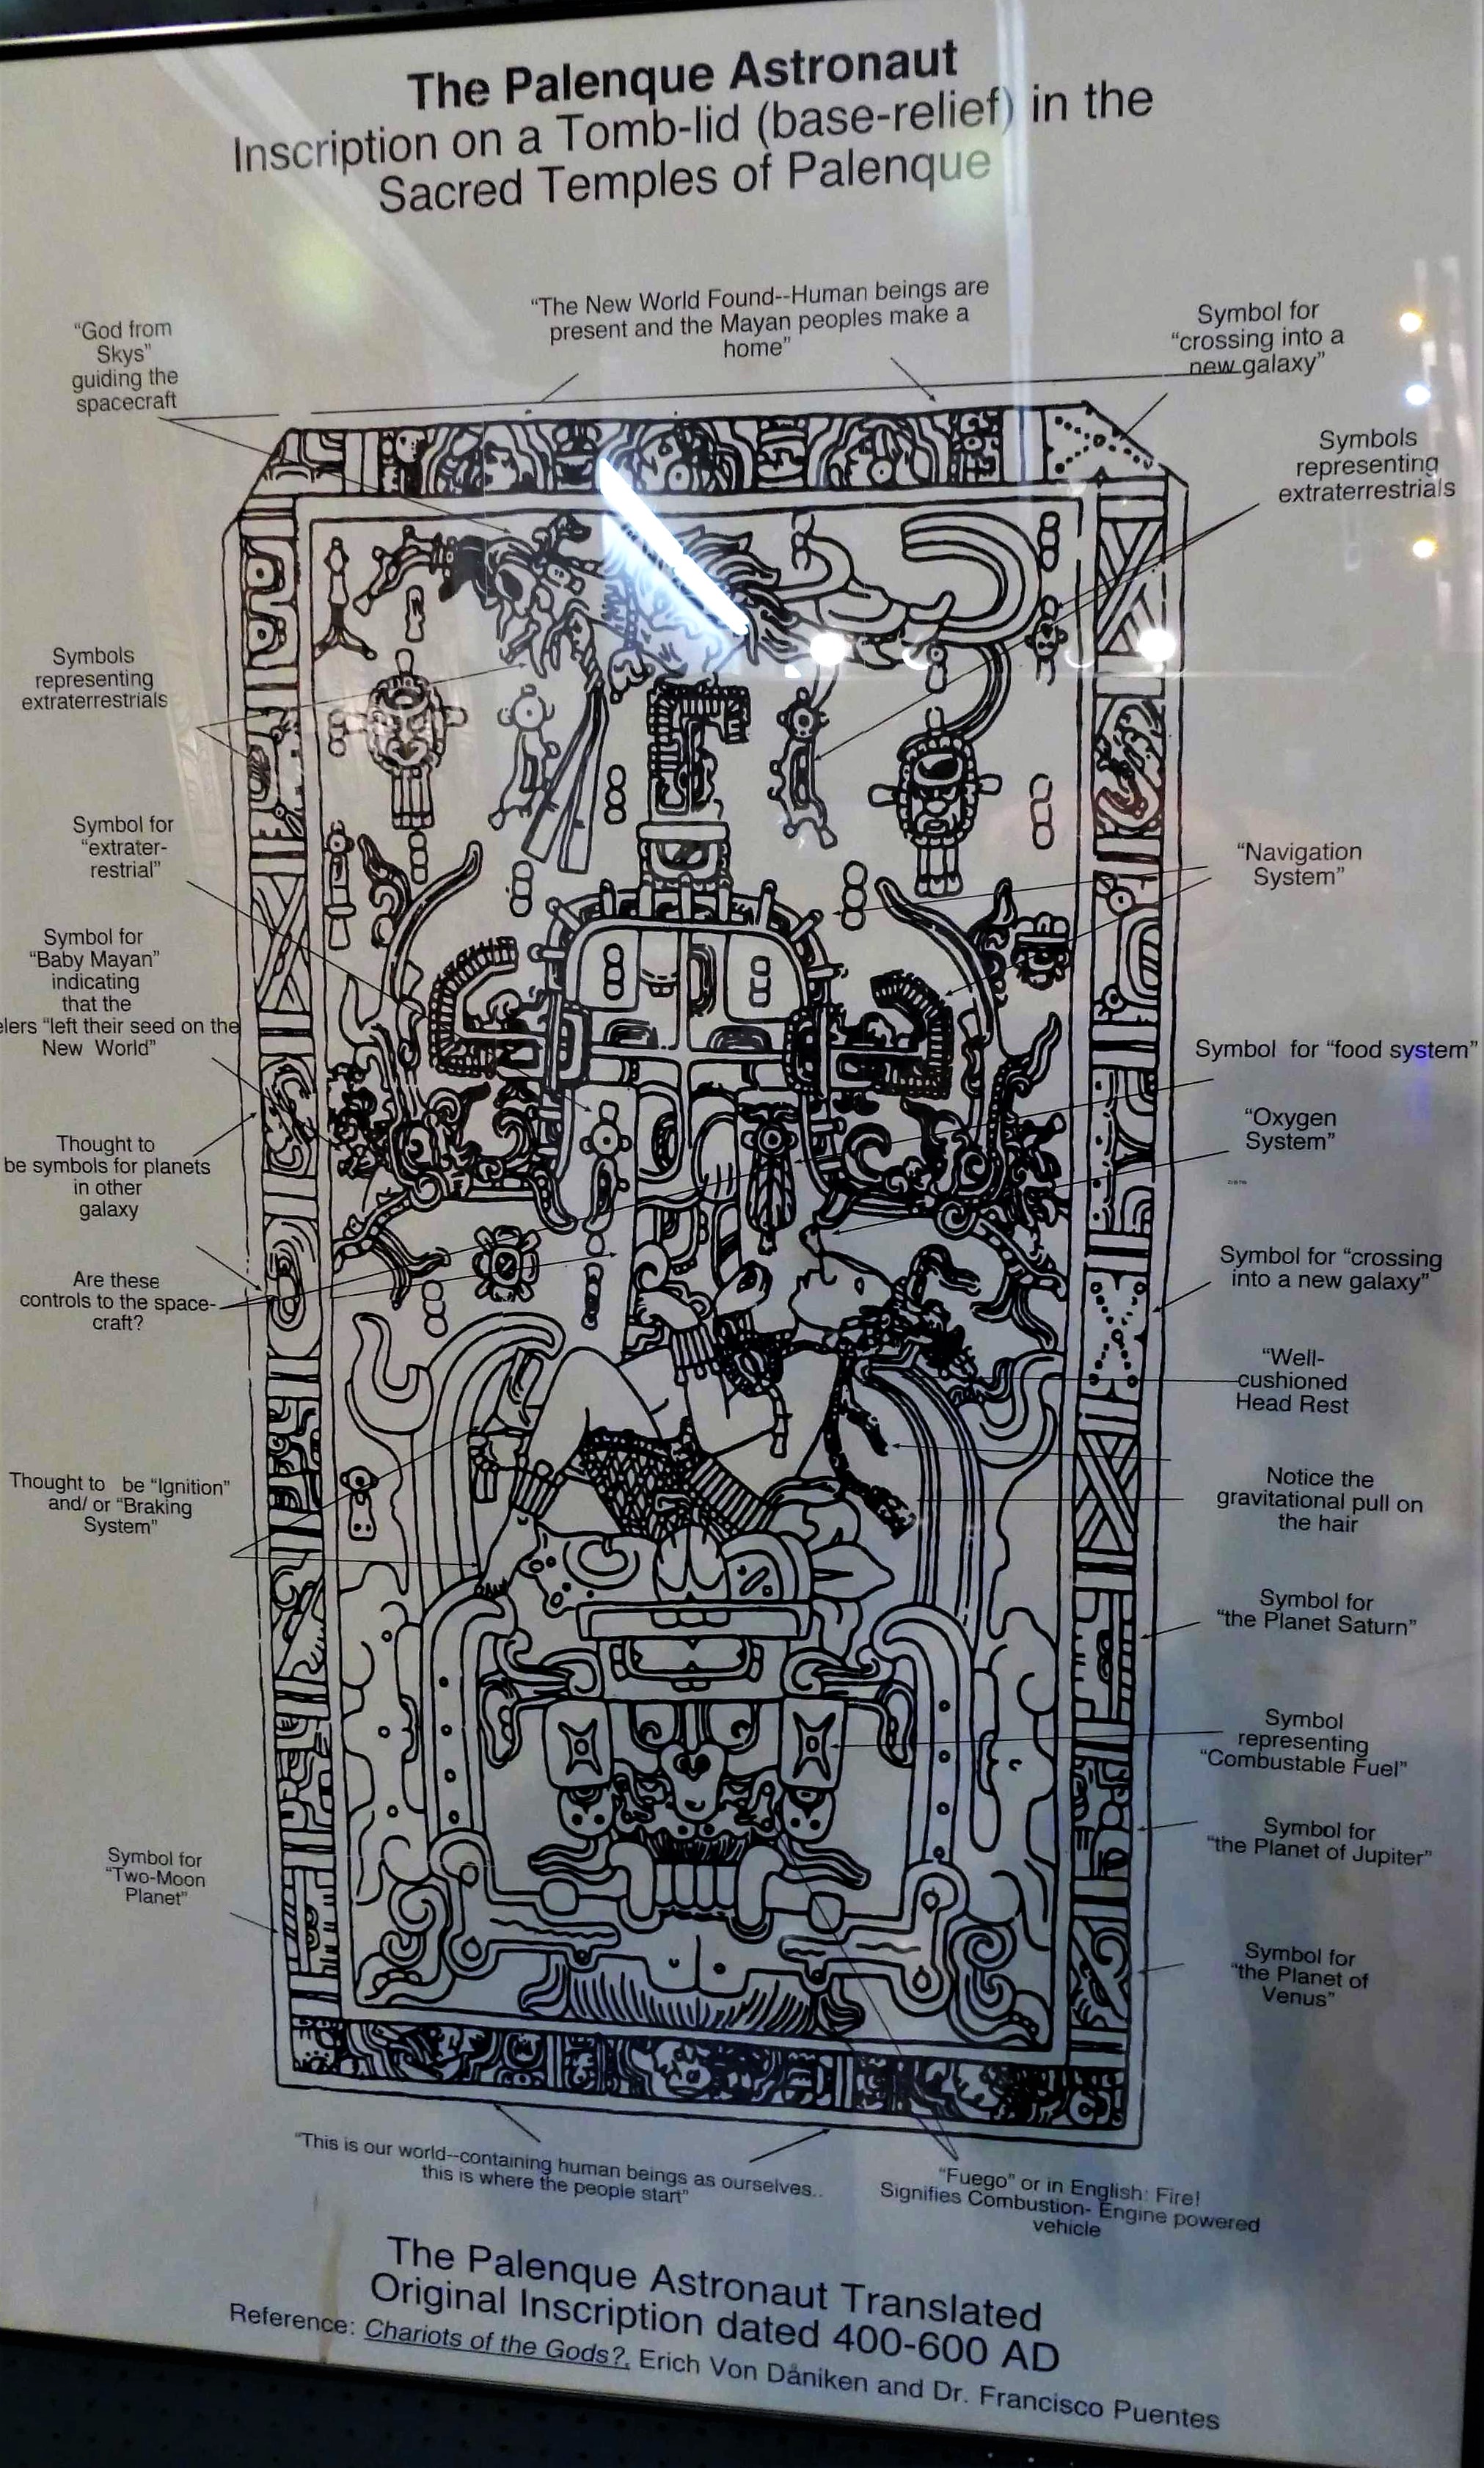 The Palenque Astronaut
Inscription on a Tomb-lid (base-relief) in the
Sacred Temples of Palenque
"The New World Found--Human beings are
present and the Mayan peoples make a
home"
"God from
Skys"
guiding the
spacecraft
Symbol for
"crossing into a
new galaxy"
Symbols
representing
extraterrestrials
Symbols
representing
extraterrestrials
Symbol for
"extrater-
restrial"
"Navigation
System"
Symbol for
"Baby Mayan"
indicating
that the
elers "left their seed on the
New World"
Symbol for "food system"
"Oxygen
System"
Thought to
be symbols for planets
in other
galaxy
Symbol for "crossing
into a new galaxy"
Are these
controls to the space-
craft?
"Well-
cushioned
Head Rest
Thought to be "Ignition"
and/ or "Braking
System"
Notice the
gravitational pull on
the hair
Symbol for
"the Planet Saturn"
Symbol
representing
"Combustable Fuel"
Symbol for
"the Planet of Jupiter"
Symbol for
"Two-Moon
Planet"
Symbol for
"the Planet of
Venus"
"This is our world--containing human beings as ourselves..
this is where the people start"
"Fuego" or in English: Fire!
Signifies Combustion- Engine powered
vehicle
The Palenque Astronaut Translated
Original Inscription dated 400-600 AD
Reference: Chariots of the Gods?, Erich Von Dåniken and Dr. Francisco Puentes